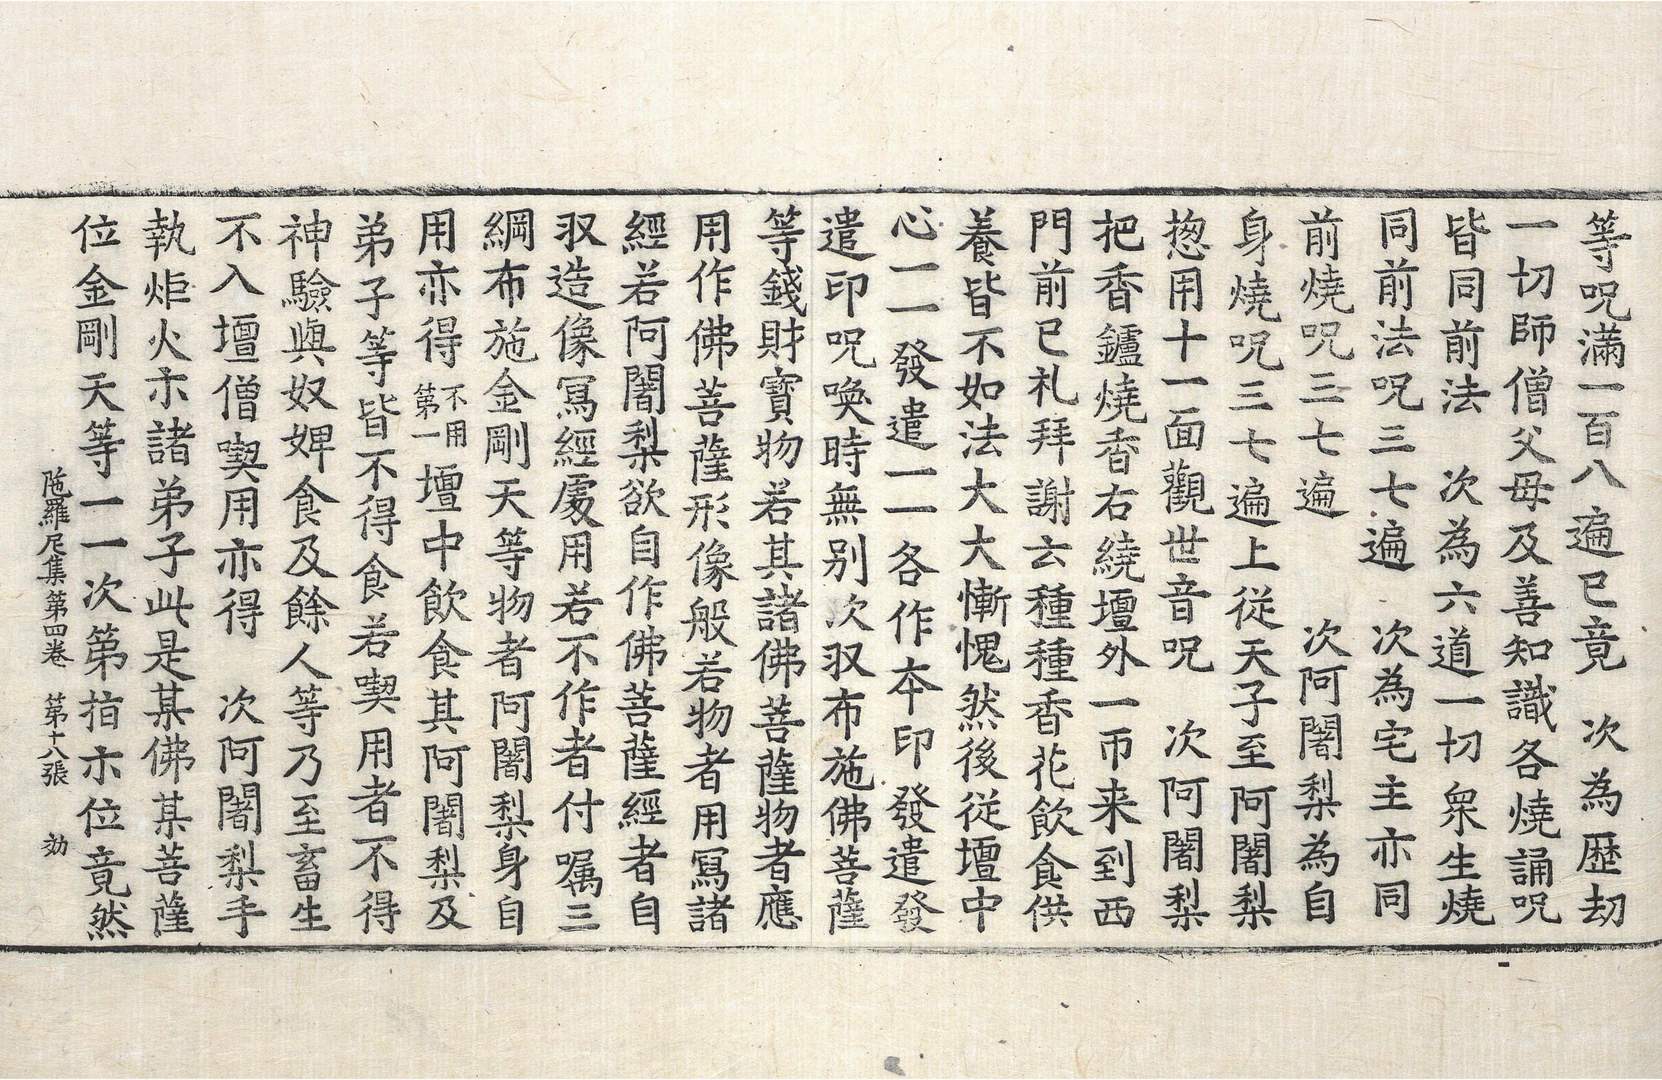 等呪滿一百八遍已竟　次為歷劫
一切師僧父母及善知識各燒誦呪
皆同前法　次為六道一切衆生燒
同前法呪三七遍　次為宅主亦同
前燒呪三七遍　　次阿闍梨為自
身燒呪三七遍上從天子至阿闍梨
惣用十一面觀世音呪　次阿闍梨
把香鑪燒香右繞壇外一帀来到西
門前已礼拜謝云種種香花飲食供
養皆不如法大大慚愧然後從壇中
心一一發遣一一各作本印發遣發
遣印呪喚時無别次収布施佛菩薩
等錢財寶物若其諸佛菩薩物者應
用作佛菩薩形像般若物者用寫諸
經若阿闍梨欲自作佛菩薩經者自
収造像寫經處用若不作者付囑三
綱布施金剛天等物者阿闍梨身自
用亦得不用第一壇中飲食其阿闍梨及
弟子等皆不得食若喫用者不得
神驗與奴婢食及餘人等乃至畜生
不入壇僧喫用亦得　次阿闍梨手
執炬火示諸弟子此是某佛某菩薩
位金剛天等一一次第指示位竟然
陁羅尼集第四卷　第十八張　劾